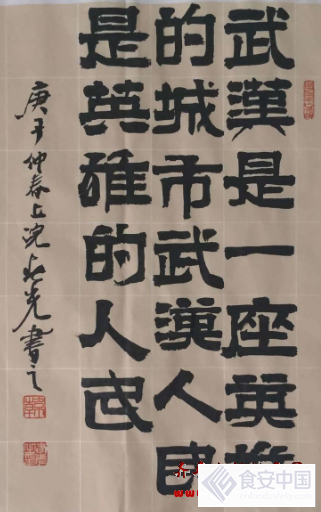 武漢是一座英雄
的城市武漢人民
是英雄的人民
庚子仲春上浣光書之
食安中国
www.